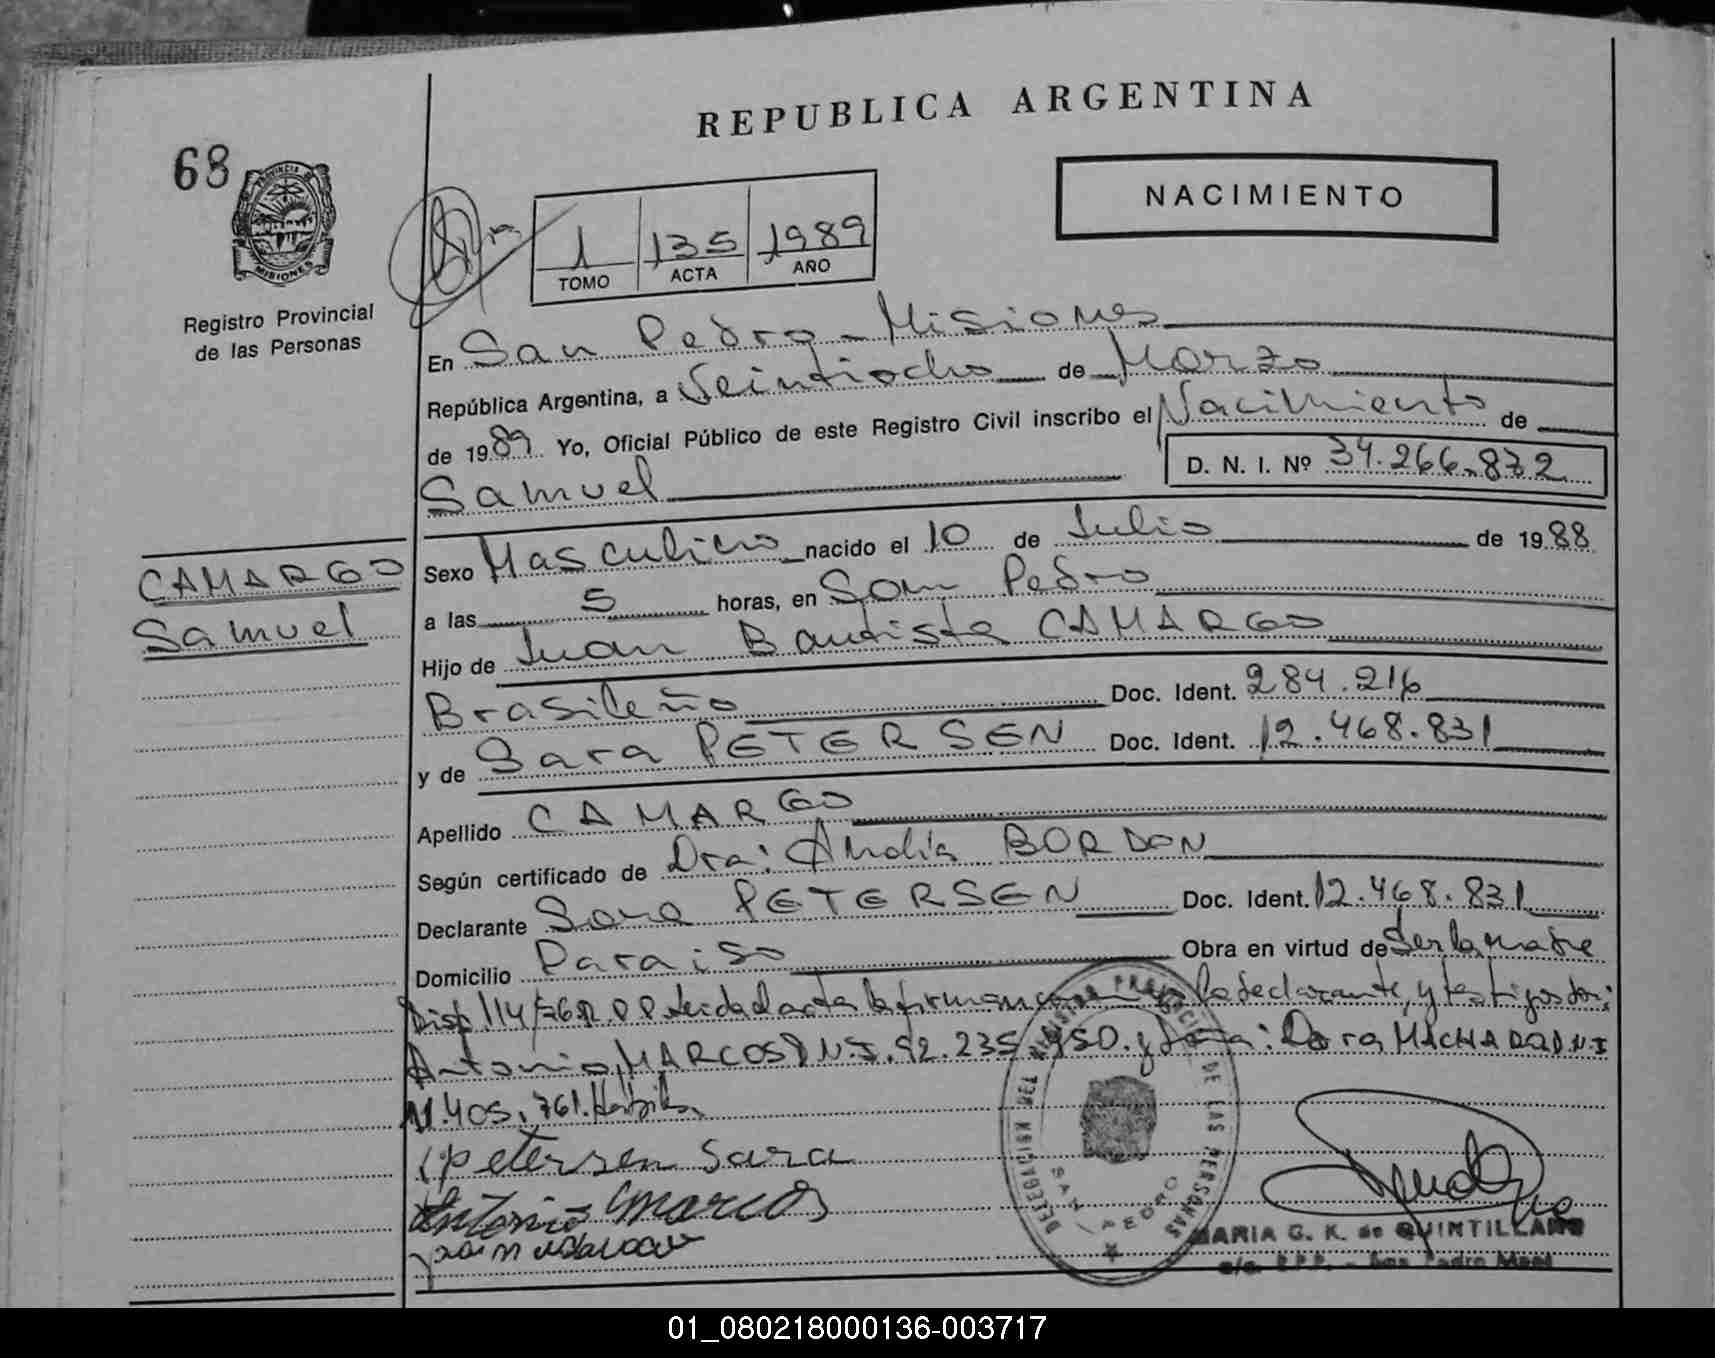 REPUBLICA ARGENTINA
68
PROVINCIA DE
MISIONES
Registro Provincial
de las Personas
NACIMIENTO
1 135 1989
TOMO ACTA AÑO
En San Pedro - Misiones
República Argentina, a Veintiocho de Marzo
de 1989. Yo, Oficial Público de este Registro Civil inscribo el Nacimiento de
Samuel D. N. I. Nº 34.266.872
CAMARGO
Samuel
Sexo Masculino nacido el 10 de Julio de 1988
a las 5 horas, en San Pedro
Hijo de Juan Bautista CAMARGO
Brasileño Doc. Ident. 284.216
y de Sara PETERSEN Doc. Ident. 12.468.831
Apellido CAMARGO
Según certificado de Dra: BORDON
Declarante Sara PETERSEN Doc. Ident. 12.468.831
Domicilio Paraiso Obra en virtud de Ser la madre
Disp 114/76 Leida el acta la firman la declarante, y testigos
Antonio, MARCOS D.N.I. 92.235.950. y Dora MACHADO D.N.I
11.405.761.
Petersen Sara
Antonio Marcos
REGISTRO PROVINCIAL DE LAS PERSONAS
DELEGACION
SAN PEDRO
MARIA G. K. de QUINTILLANO
01_080218000136-003717